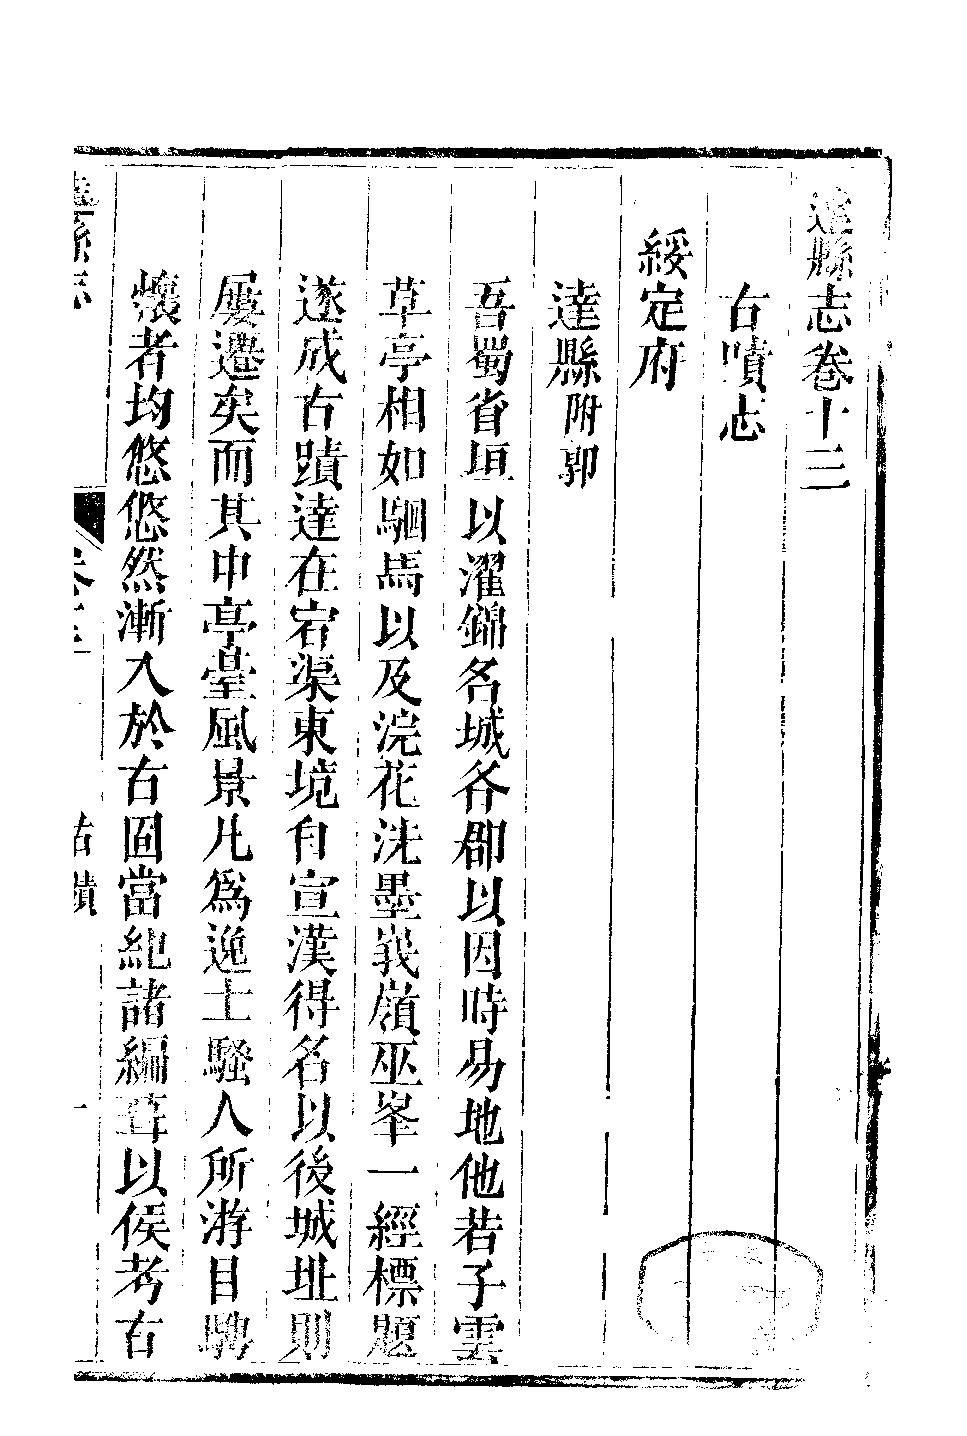 達縣志卷十三
古蹟志
綏定府
達縣附郭
吾蜀省垣以濯錦名城各郡以因時易地他若子雲
草亭相如駟馬以及浣花洗墨峩嶺巫峯一經標題
遂成古蹟達在宕渠東境自宣漢得名以後城址則
屢遷矣而其中亭臺風景凡爲逸士騷人所游目騁
懷者均悠悠然漸入於古固當紀諸編茸以俟考古
達縣志 卷十三 古蹟 一